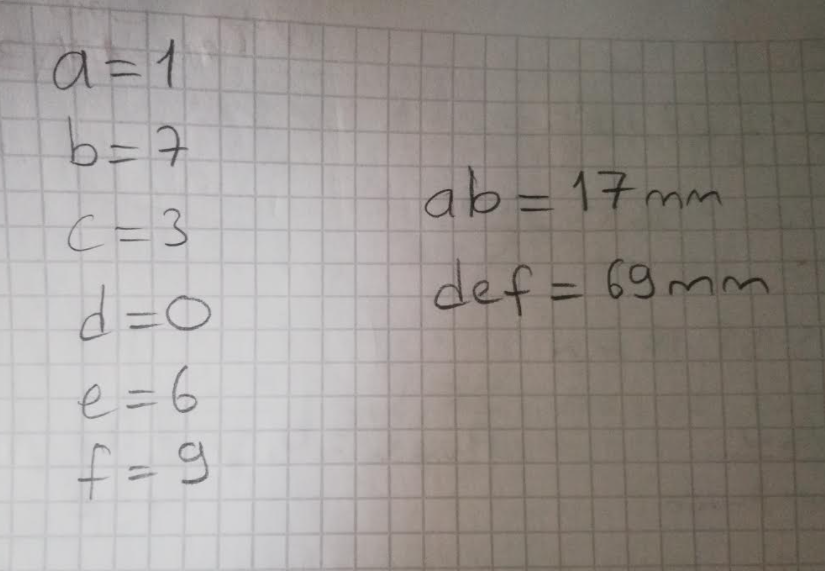 a = 1
b = 7
c = 3
d = 0
e = 6
f = 9
ab = 17 mm
def = 69 mm